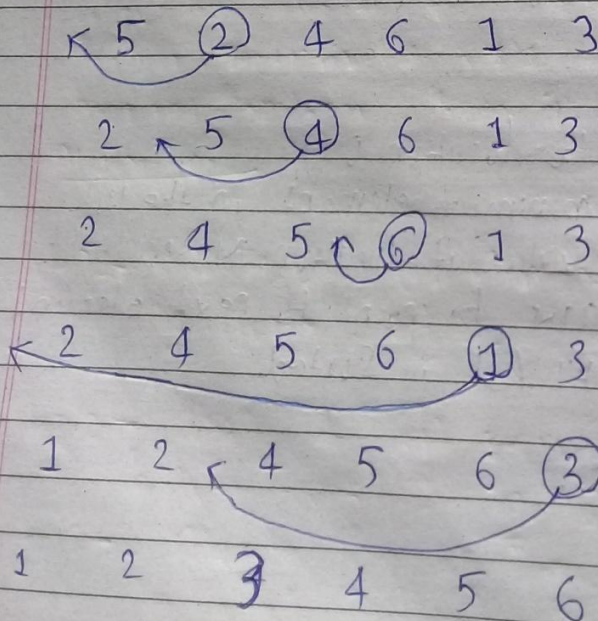 5 2 4 6 1 3
2 5 4 6 1 3
2 4 5 6 1 3
2 4 5 6 1 3
1 2 4 5 6 3
1 2 3 4 5 6